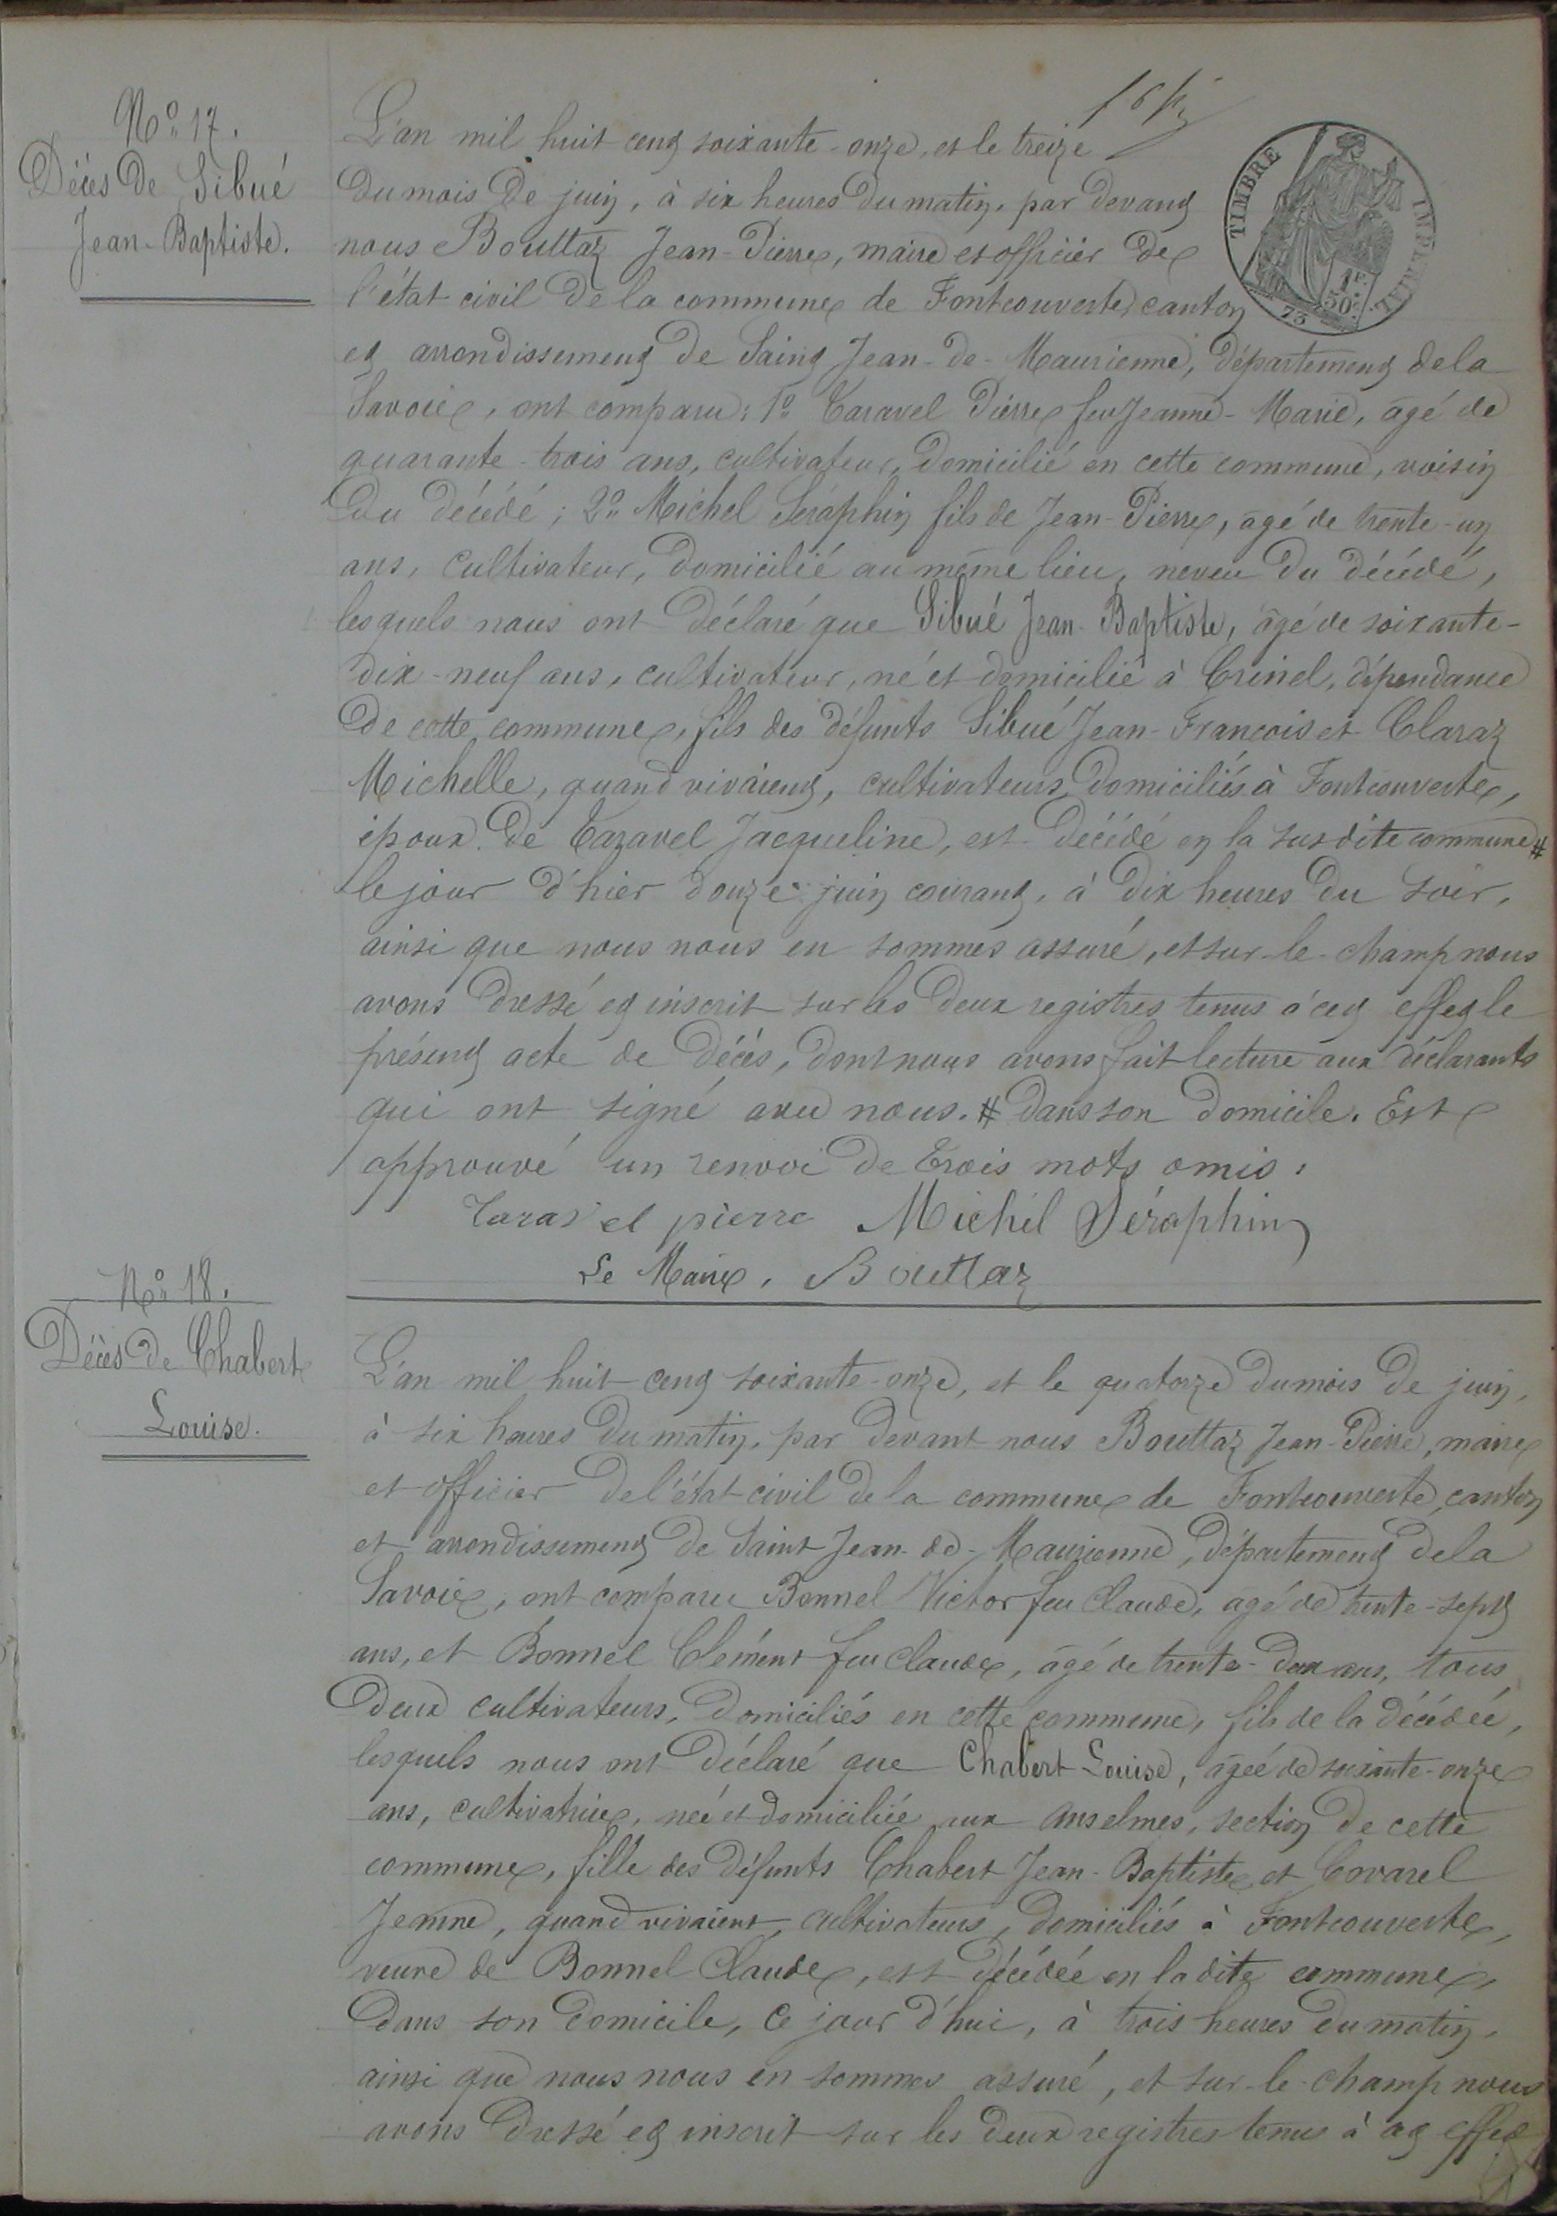 N° 17.
Décès de Sibué
Jean-Baptiste.
TIMBRE IMPERIAL
1F. 50c.
73
L'an mil huit cent soixante-onze, et le treize
du mois de juin, à six heures du matin, par devant
nous Bouttaz Jean-Pierre, maire et officier de
l'état civil de la commune de Fontcouverte, canton
et arrondissement de Saint Jean-de-Maurienne, département de la
Savoie, ont comparu: 1° Caravel Pierre feu Jeanne-Marie, âgé de
quarante-trois ans, cultivateur, domicilié en cette commune, voisin
du décédé; 2° Michel Séraphin fils de Jean-Pierre, âgé de trente-un
ans, cultivateur, domicilié au même lieu, neveu du décédé,
lesquels nous ont déclaré que Sibué Jean-Baptiste, âgé de soixante-
dix-neuf ans, cultivateur, né et domicilié à Crinel, dépendance
de cette commune, fils des défunts Sibué Jean-François et Claraz
Michelle, quand vivaient, cultivateurs, domiciliés à Fontcouverte,
époux de Caravel Jacqueline, est décédé en la susdite commune #
le jour d'hier douze juin courant, à dix heures du soir,
ainsi que nous nous en sommes assuré, et sur-le-champ nous
avons dressé et inscrit sur les deux registres tenus à cet effet le
présent acte de décès, dont nous avons fait lecture aux déclarants
qui ont signé avec nous. # dans son domicile. Est
approuvé un renvoi de trois mots omis.
pierre Michel Séraphin
Le Maire, Bouttaz
N° 18.
Décès de Chabert
Louise.
L'an mil huit cent soixante-onze, et le quatorze du mois de juin,
à six heures du matin, par devant nous Bouttaz Jean-Pierre, maire
et officier de l'état civil de la commune de Fontcouverte, canton
et arrondissement de Saint Jean-de-Maurienne, département de la
Savoie, ont comparu Bonnel Victor feu Claude, âgé de trente-sept
ans, et Bonnel Clément feu Claude, âgé de trente-deux ans, tous
deux cultivateurs, domiciliés en cette commune, fils de la décédée,
lesquels nous ont déclaré que Chabert Louise, âgée de soixante-onze
ans, cultivatrice, née et domiciliée aux Anselmes, section de cette
commune, fille des défunts Chabert Jean-Baptiste et Covarel
Jeanne, quand vivaient, cultivateurs, domiciliés à Fontcouverte,
veuve de Bonnel Claude, est décédée en la dite commune,
dans son domicile, ce jour d'hui, à trois heures du matin,
ainsi que nous nous en sommes assuré, et sur-le-champ nous
avons dressé et inscrit sur les deux registres tenus à cet effet